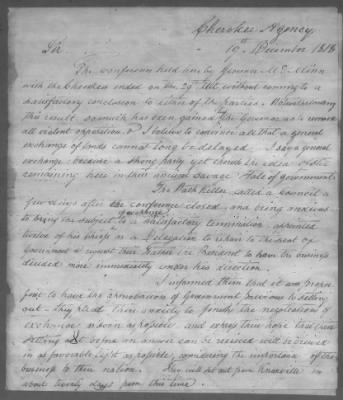 Cherokee Agency
19th December 1818
Sir
The conference held here by Governor McMinn
with the Cherokees ended on the 29th Ult. without coming to a
satisfactory conclusion to either of the Parties. Notwithstanding
this result so much has been gained by the Governor as to remove
all violent opposition, & I believe to convince all that a general
exchange of lands cannot long be delayed. I say a general
exchange because a strong party yet cherish the idea of
remaining here in their ancient savage State of government.
The Path Killer called a Council a
few days after the conference closed, and being anxious
to bring the subject of exchange to a satisfactory termination appointed
twelve of his Chiefs as a Delegation to repair to the seat of
Government & request their Father the President to have the business
decided more immediately under his direction.
I informed them that it was necessary
for to have the approbation of Government previous to setting
out – they plead their anxiety to finish the negotiations of
exchange as soon as possible and urged their hope that their
setting out before an answer can be received will be viewed
in as favorable light as possible, considering the importance of the
business to their nation. They will set out from Knoxville in
about twenty days from this time.